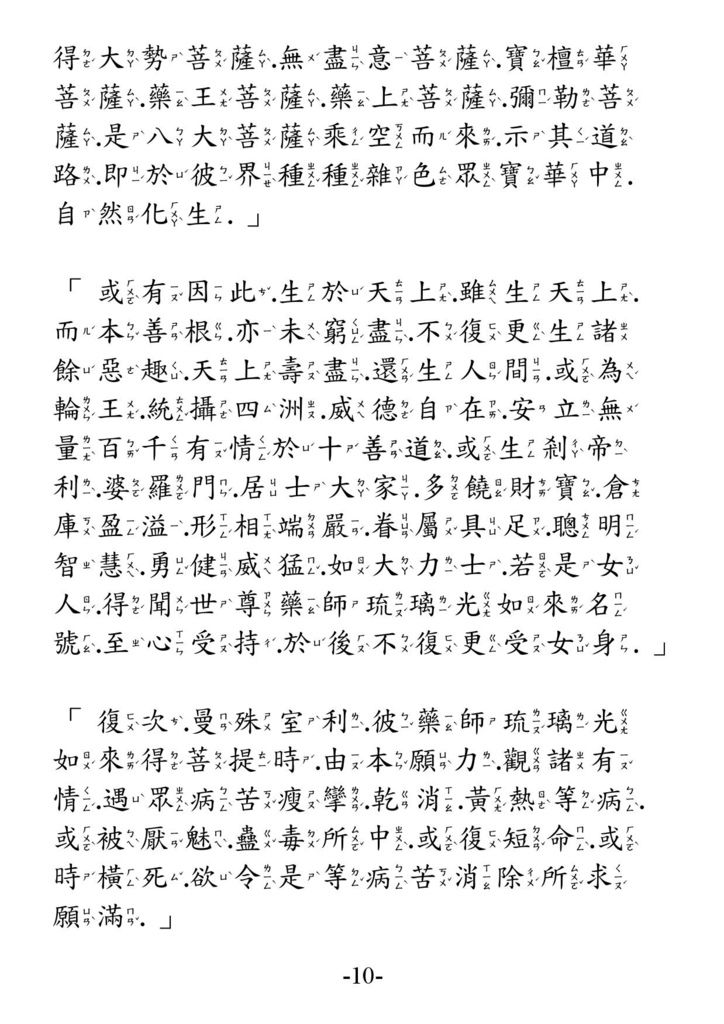 得大勢菩薩.無盡意菩薩.寶檀華
菩薩.藥王菩薩.藥上菩薩.彌勒菩
薩.是八大菩薩乘空而來.示其道
路.即於彼界種種雜色眾寶華中.
自然化生.」
「或有因此.生於天上.雖生天上.
而本善根.亦未窮盡.不復更生諸
餘惡趣.天上壽盡.還生人間.或為
輪王.統攝四洲.威德自在.安立無
量百千有情於十善道.或生剎帝
利.婆羅門.居士大家.多饒財寶.倉
庫盈溢.形相端嚴.眷屬具足.聰明
智慧.勇健威猛.如大力士.若是女
人.得聞世尊藥師琉璃光如來名
號.至心受持.於後不復更受女身.」
「復次.曼殊室利.彼藥師琉璃光
如來得菩提時.由本願力.觀諸有
情.遇眾病苦瘦攣.乾消.黃熱等病.
或被厭魅.蠱毒所中.或復短命.或
時橫死.欲令是等病苦消除所求
願滿.」
-10-